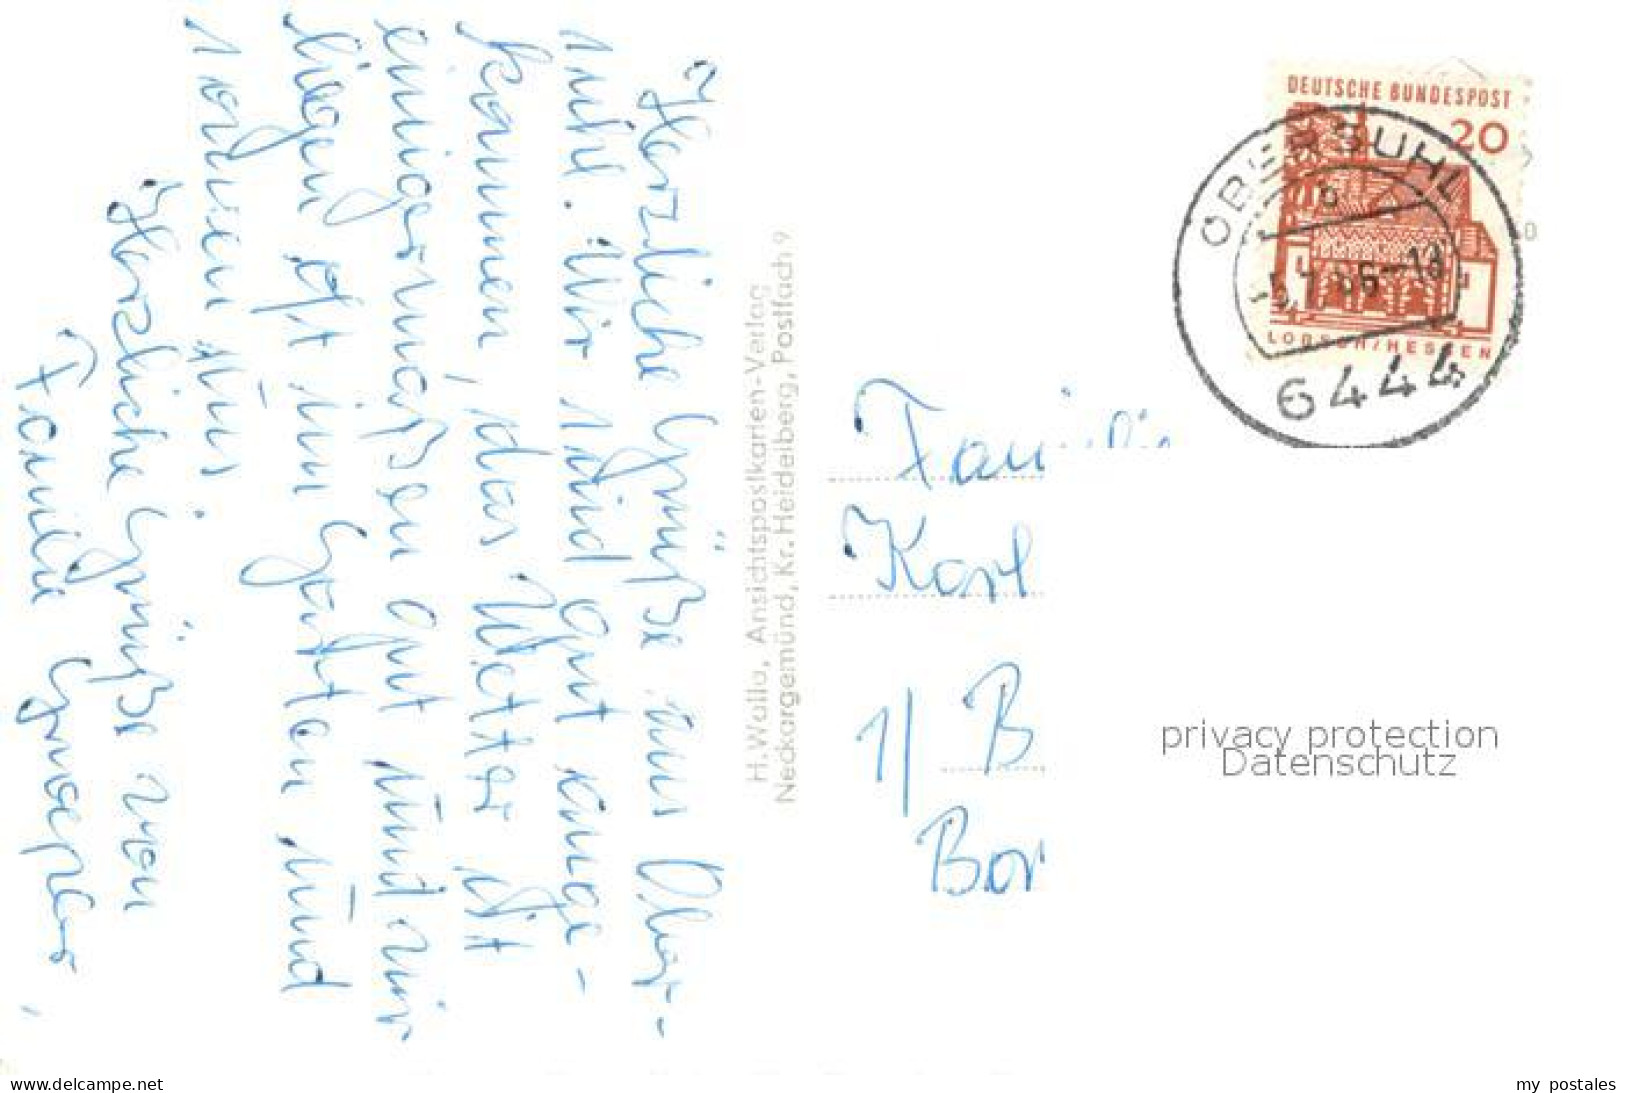 Herzliche Grüße aus Ober-
suhl. Wir sind gut ange-
kommen, das Wetter ist
einigermaßen gut und wir
liegen oft im Garten und
sonnen uns.
Herzliche Grüße von
Familie
H. Walla, Ansichtspostkarten-Verlag
Neckargemünd, Kr. Heidelberg, Postfach 9
DEUTSCHE BUNDESPOST
20
LORSCH/HESSEN
OBERSUHL
b
-5.7.66-18
6444
Familie
Karl
1/ B
Bor
privacy protection
Datenschutz
www.delcampe.net
my postales